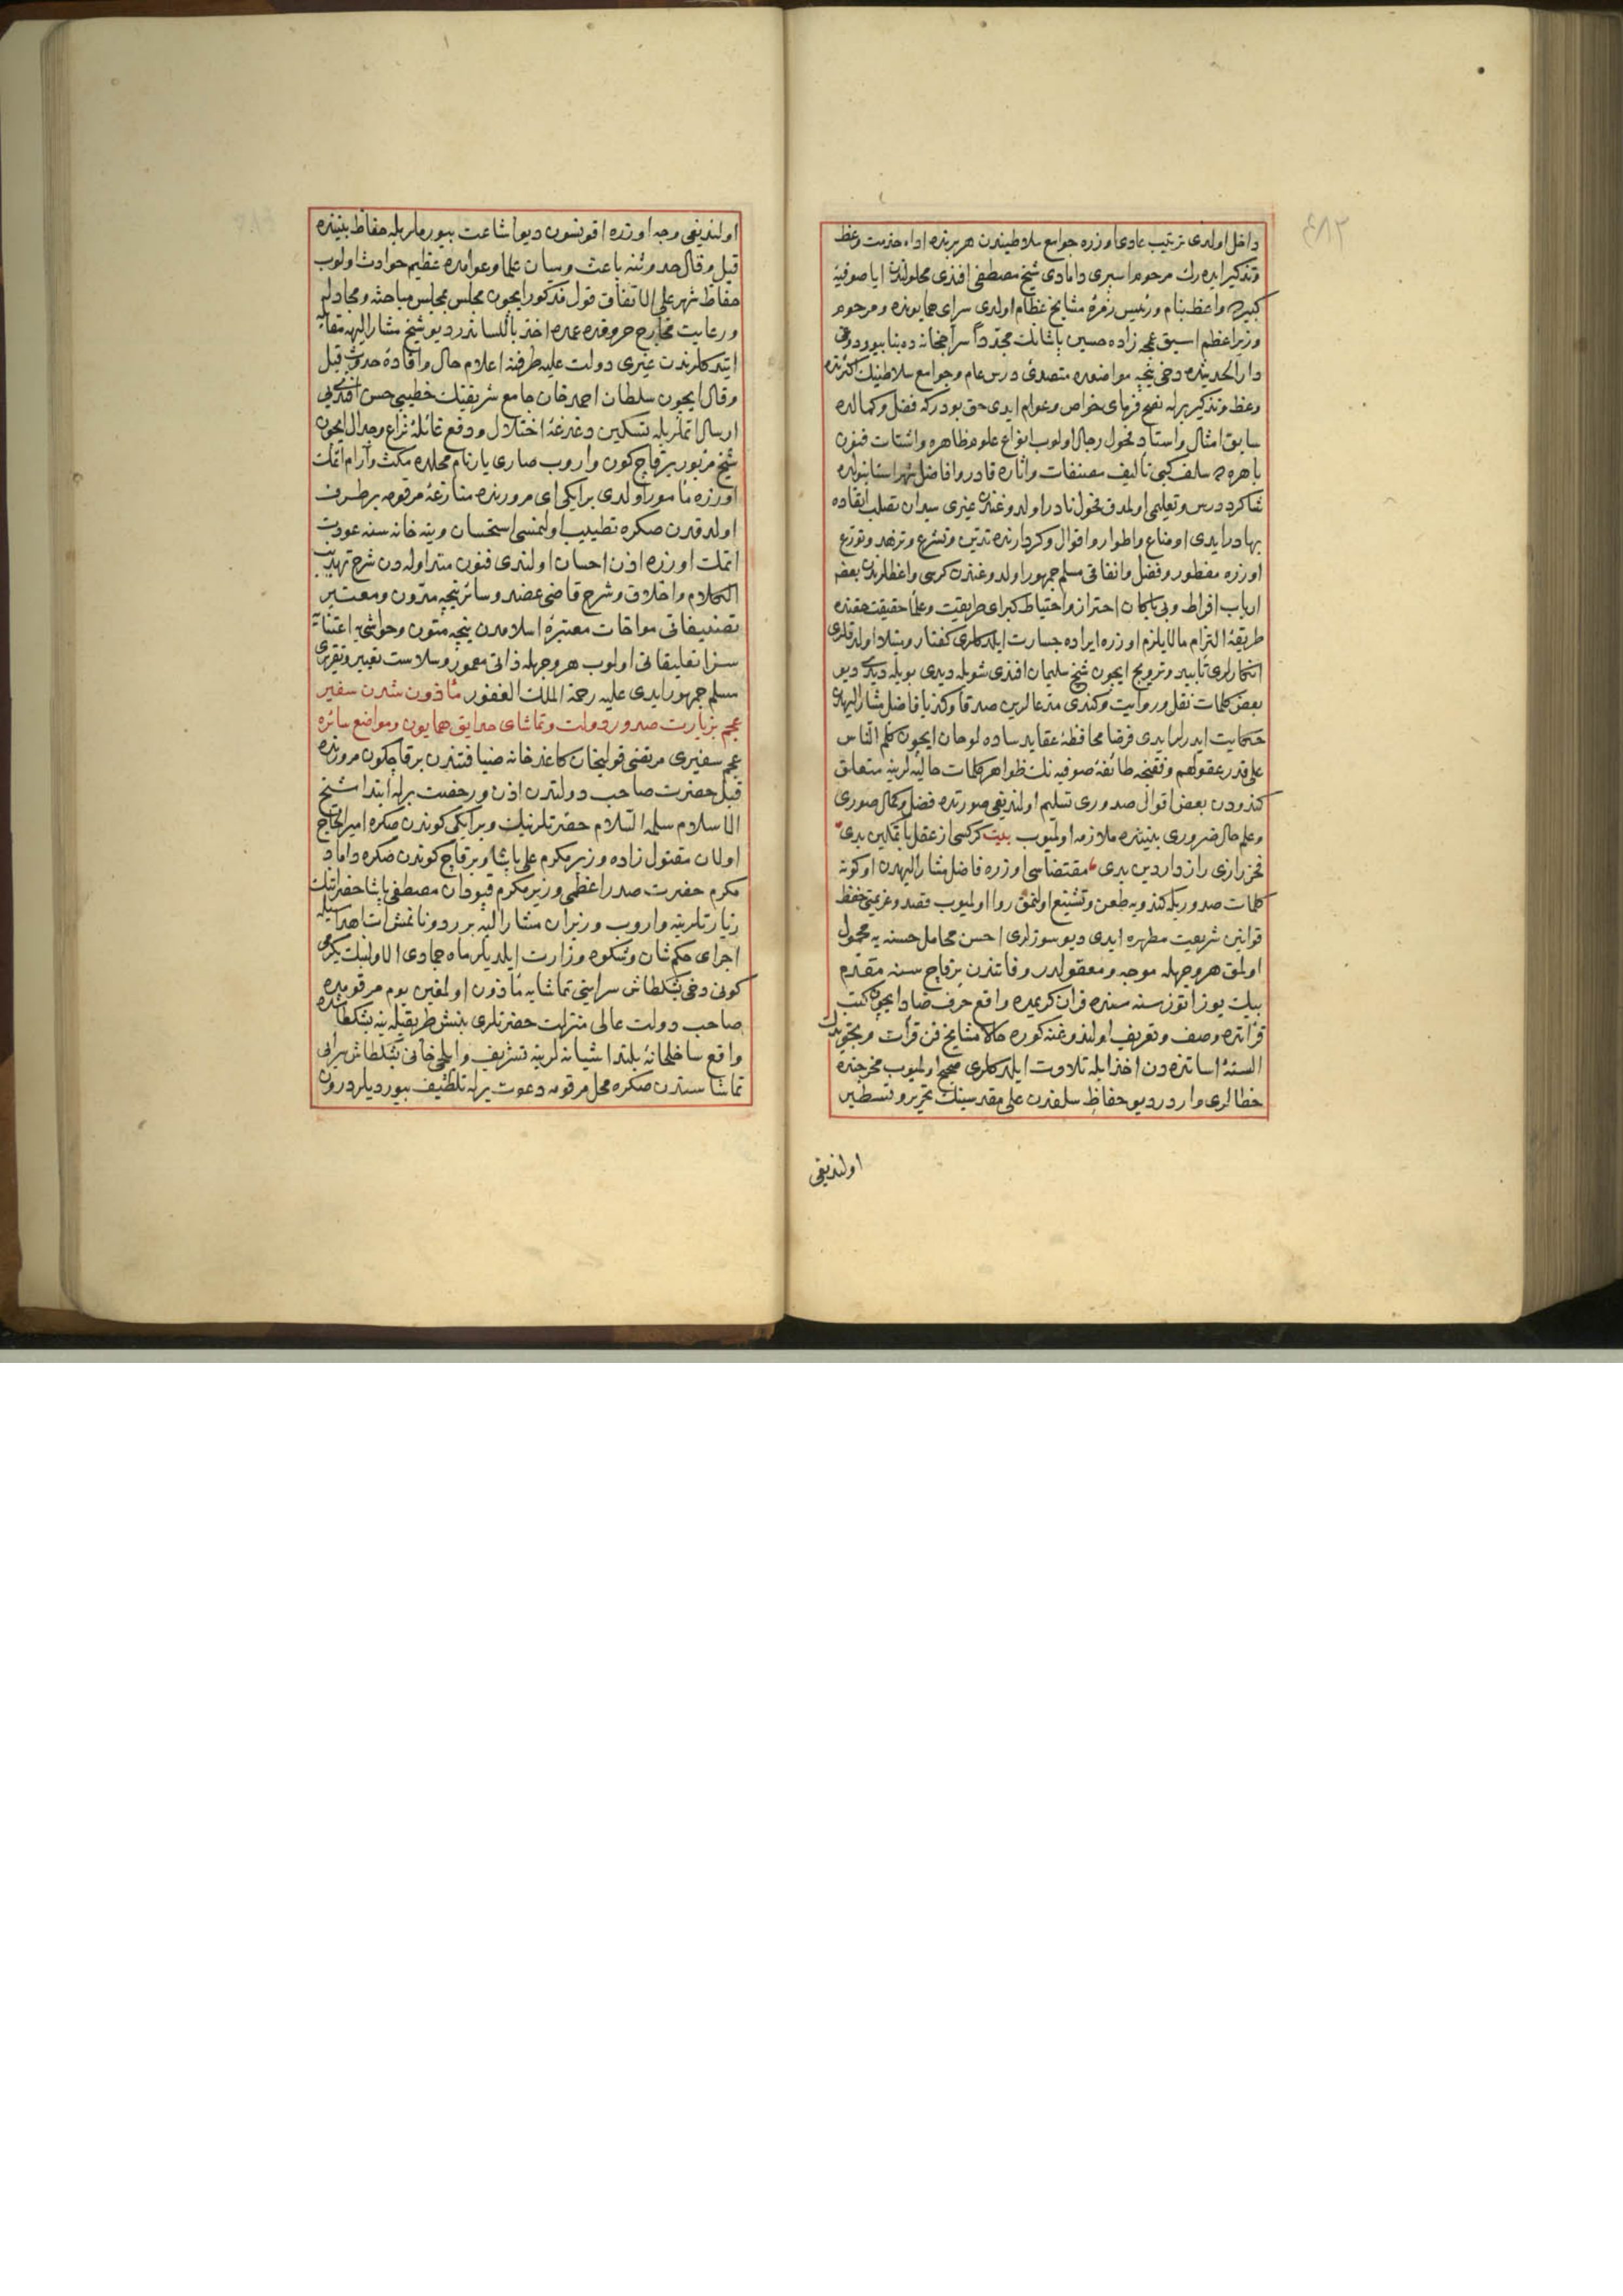 ٤٨٣
داخل اولدی ترتیب عادی اوزره جوامع سلاطیندن هر برنده اداء خدمت وعظ
وتذکیر ایده‌رك مرحوم اسبری دامادی شیخ مصطفی افندی محلولندن ایاصوفیۀ
کبیره‌یه واعظ بنام ورئیس زمرۀ مشایخ عظام اولدی سرای همایونده ومرحوم
وزیر اعظم اسبق عمجه زاده حسین پاشانك مجدداً سراجخانه ده بنا بیوردوغی
دار الحدیثده دخی نیجه مواضعده متصدئ درس عام وجوامع سلاطینك اکثرنده
وعظ وتذکیر برله نصح فرمای خواص وعوام ایدی حق بودرکه فضل وکمالده
سابق امثال واستاد فحول رجال اولوب انواع علوم ظاهره واشتات فنون
باهره‌ده سلف کبی تألیف مصنفات واثاره قادر وافاضل شهر استانبولده
شاکرد درس وتعلیمی اولمدق فحول نادر اولدوغندن غیری میدان تصلب اتقاده
بهادر ایدی اوضاع واطوار واقوال وکردارنده تدین وتشرع وتزهد وتورع
اوزره مفطور وفضل واتقانی مسلم جمهور اولدوغندن کرسی واعظلرندن بعض
ارباب افراط وبی باکان احتراز واحتیاط کبرای طریقت وعلماء حقیقت حقنده
طریقۀ التزام مالایلزم اوزره ایراده جسارت ایلدکلری کفتار ومبتلا اولدقلری
انکارلری تأیید وترویج ایچون شیخ سلیمان افندی شویله دیدی بویله دیدی دیو
بعض کلمات نقل وروایت وکندی مدعالرین صدقاً وکذباً فاضل مشار الیهدن
حکایت ایدرلر ایدی فرضا محافظۀ عقاید ساده لوحان ایچون کلم الناس
علی قدر عقولهم وفقنجه طائفۀ صوفیه نك ظواهر کلمات حالیه‌لرینه متعلق
کندودن بعض اقوال صدوری تسلیم اولندیغی صورتده فضل وکمال صوری
وعلم حال ضروری بیننده ملازمه اولمیوب بیت کر کسی از عقل با تمکین بدی
فخر رازی راز دار دین بدی مقتضاسی اوزره فاضل مشار الیهدن اوکونه
کلمات صدوریله کندویه طعن وتشنیع اولنمق روا اولمیوب قصد وعزیمتی حفظ
قوانین شریعت مطهره ایدی دیو سوزلری احسن محامل حسنه یه محمول
اولمق هر وجهله موجه ومعقولدر وفاتندن برقاچ سنه مقدم
بیك یوز اتوز سنه سنده قران کریمده واقع حرف ضاد ایچون کتب
قرائتده وصف وتعریف اولندوغنه کوره حالا مشایخ فن قرأت وتجویدك
السنۀ اساتذه دن اخذ ایله تلاوت ایلدکلری صحیح اولمیوب مخرجنده
خطالری واردر دیو حفاظ سلفدن علی مقدسینك تحریر وتسطیر
اولندیغی
اولندیغی وجه اوزره اقونسون دیو اشاعت بیورمالریله حفاظ بیننده
قیل وقال حدوثنه باعث ومیان علما وعوامده عظیم حوادث اولوب
حفاظ شهر علی الاتفاق قول مذکور ایچون مجلس مجلس مباحثه ومجادله
ورعایت مخارج حروفده عمده اخذ باللساندر دیو شیخ مشار الیهه مقابله
ایتدکلرندن غیری دولت علیه طرفنه اعلام حال وافادۀ حدوث قیل
وقال ایچون سلطان احمد خان جامع شریفنك خطیبی حسن افندی‌یی
ارسال اتملریله تسکین دغدغۀ اختلال ودفع غائلۀ نزاع وجدال ایچون
شیخ مزبور برقاچ کون واروب صاری یار نام محلده مکث وآرام اتمك
اوزره مأمور اولدی بر ایکی ای مرورنده منازعۀ مرقومه برطرف
اولدقدن صکره تطییب اولنمسی استحسان وینه خانه سنه عودت
اتمك اوزره اذن احسان اولندی فنون متداوله دن شرح تهذیب
الکلام واخلاق وشرح قاضی عضد وسائر نیجه مدون ومعتبر
تصنیفاتی مؤلفات معتبرۀ اسلامدن نیجه متون وحواشی‌یه اعتنایه
سزا تعلیقاتی اولوب هر وجهله ذاتی معمور وسلاست تعبیر وتقریری
مسلم جمهور ایدی علیه رحمة الملك الغفور مأذون شدن سفیر
عجم بزیارت صدور دولت وتماشای حدایق همایون ومواضع سائره
عجم سفیری مرتضی قولیخان کاغدخانه ضیافتندن برقاچ کون مرورنده
قبل حضرت صاحب دولتدن اذن ورخصت برله ابتدا شیخ
الاسلام سلمه السلام حضرتلرینك وبر ایکی کوندن صکره امیر الحاج
اولان مقتول زاده وزیر مکرم علی پاشا وبرقاچ کوندن صکره داماد
مکرم حضرت صدر اعظمی وزیر مکرم قپودان مصطفی پاشا حضرتلرینك
زیارتلرینه واروب وزیران مشار الیه
اجرای حکم شان وشکوه وزارت ایلدیلر ماه جمادی الاولینك یکرمی
کونی دخی بشکطاش سراینی تماشایه مأذون اولمغین یوم مرقومده
صاحب دولت عالی منزلت حضرتلری بنش طریقیله ینه بشکطاشده
واقع ساحلخانۀ بلند اشیانه لرینه تشریف وایلچی خانی بشکطاش سراینی
تماشا سندن صکره محل مرقومه دعوت برله تلطیف بیوردیلر درون